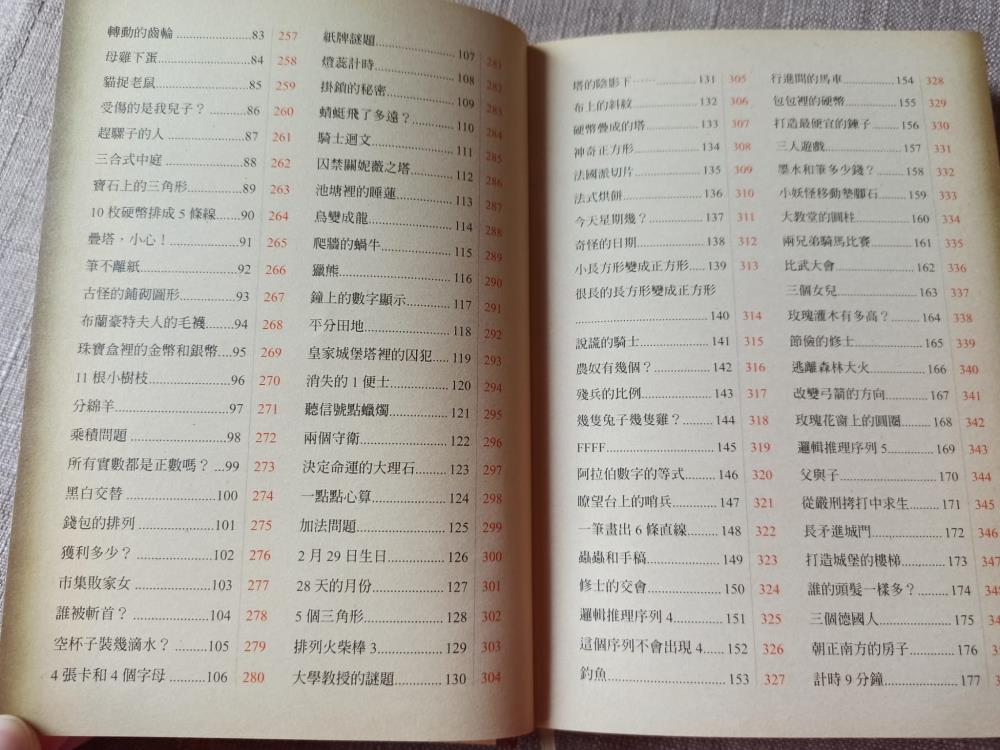 轉動的齒輪..................83 257
母雞下蛋..................84 258
貓捉老鼠..................85 259
受傷的是我兒子？..........86 260
趕騾子的人..................87 261
三合式中庭..................88 262
寶石上的三角形............89 263
10 枚硬幣排成 5 條線......90 264
疊塔，小心！..................91 265
筆不離紙..................92 266
古怪的鋪砌圖形............93 267
布蘭豪特夫人的毛襪........94 268
珠寶盒裡的金幣和銀幣....95 269
11 根小樹枝..................96 270
分綿羊..................97 271
乘積問題..................98 272
所有實數都是正數嗎？...99 273
黑白交替..................100 274
錢包的排列..................101 275
獲利多少？..................102 276
市集敗家女..................103 277
誰被斬首？..................104 278
空杯子裝幾滴水？........105 279
4 張卡和 4 個字母.........106 280
紙牌謎題..................107 281
燈蕊計時..................108 282
掛鎖的秘密..................109 283
蜻蜓飛了多遠？............110 284
騎士迴文..................111 285
囚禁關妮薇之塔............112 286
池塘裡的睡蓮............113 287
鳥變成龍..................114 288
爬牆的蝸牛..................115 289
獵熊..................116 290
鐘上的數字顯示............117 291
平分田地..................118 292
皇家城堡塔裡的囚犯.....119 293
消失的 1 便士............120 294
聽信號點蠟燭............121 295
兩個守衛..................122 296
決定命運的大理石........123 297
一點點心算..................124 298
加法問題..................125 299
2 月 29 日生日............126 300
28 天的月份..................127 301
5 個三角形..................128 302
排列火柴棒 3............129 303
大學教授的謎題............130 304
塔的陰影下..................131 305
布上的斜紋..................132 306
硬幣疊成的塔............133 307
神奇正方形..................134 308
法國派切片..................135 309
法式烘餅..................136 310
今天星期幾？............137 311
奇怪的日期..................138 312
小長方形變成正方形.....139 313
很長的長方形變成正方形
..................140 314
說謊的騎士..................141 315
農奴有幾個？............142 316
殘兵的比例..................143 317
幾隻兔子幾隻雞？........144 318
FFFF..................145 319
阿拉伯數字的等式........146 320
瞭望台上的哨兵............147 321
一筆畫出 6 條直線........148 322
蟲蟲和手稿..................149 323
修士的交會..................150 324
邏輯推理序列 4............151 325
這個序列不會出現 4......152 326
釣魚..................153 327
行進間的馬車............154 328
包包裡的硬幣............155 329
打造最便宜的鍊子........156 330
三人遊戲..................157 331
墨水和筆多少錢？........158 332
小妖怪移動墊腳石........159 333
大教堂的圓柱............160 334
兩兄弟騎馬比賽............161 335
比武大會..................162 336
三個女兒..................163 337
玫瑰灌木有多高？........164 338
節儉的修士..................165 339
逃離森林大火............166 340
改變弓箭的方向............167 341
玫瑰花窗上的圓圈........168 342
邏輯推理序列 5............169 343
父與子..................170 344
從嚴刑拷打中求生........171 345
長矛進城門..................172 346
打造城堡的樓梯............173 347
誰的頭髮一樣多？........174
三個德國人..................175
朝正南方的房子............176
計時 9 分鐘..................177